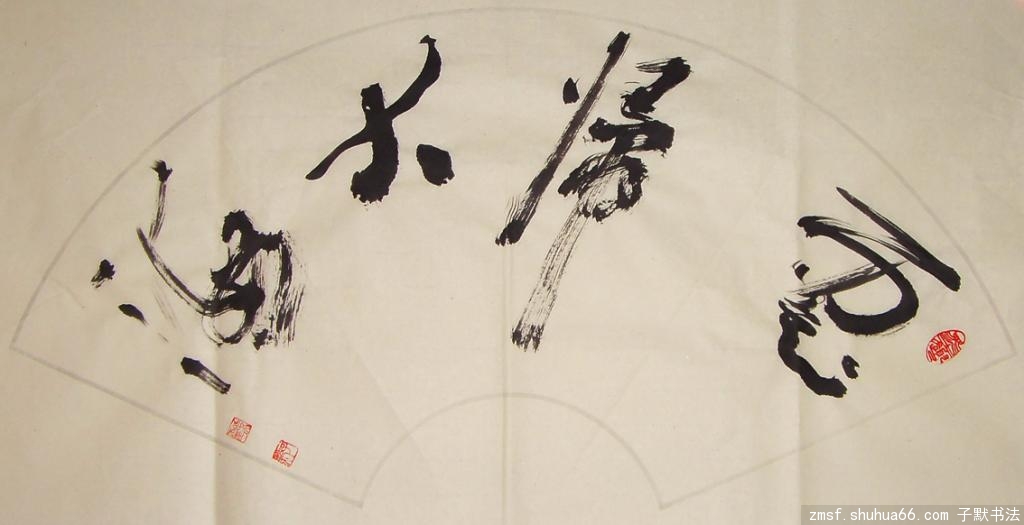 龍歸大海
zmsf.shuhua66.com 子默书法